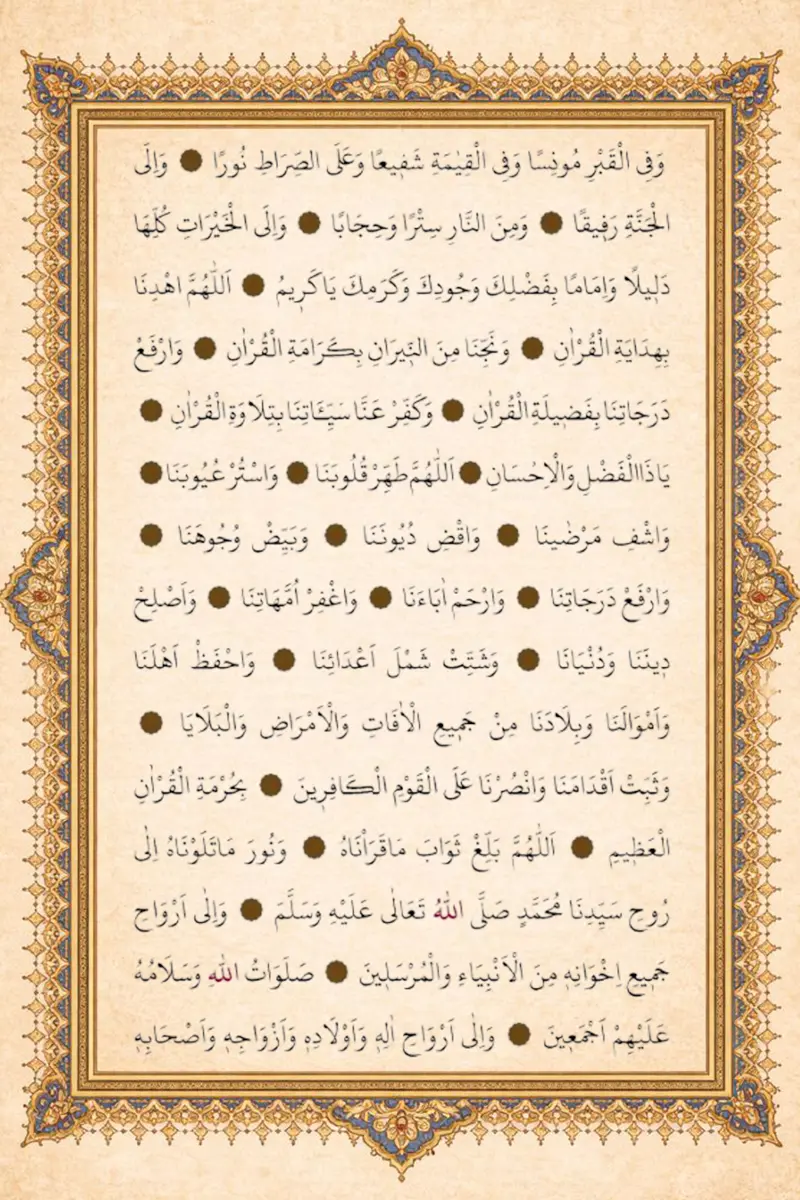 وَفِى الْقَبْرِ مُونِسًا وَفِى الْقِيٰمَةِ شَفٖيعًا وَعَلَى الصِّرَاطِ نُورًا ۞ وَاِلَى
الْجَنَّةِ رَفٖيقًا ۞ وَمِنَ النَّارِ سِتْرًا وَحِجَابًا ۞ وَاِلَى الْخَيْرَاتِ كُلِّهَا
دَلٖيلًا وَاِمَامًا بِفَضْلِكَ وَجُودِكَ وَكَرَمِكَ يَاكَرٖيمُ ۞ اَللّٰهُمَّ اهْدِنَا
بِهِدَايَةِ الْقُرْاٰنِ ۞ وَنَجِّنَا مِنَ النّٖيرَانِ بِكَرَامَةِ الْقُرْاٰنِ ۞ وَارْفَعْ
دَرَجَاتِنَا بِفَضٖيلَةِ الْقُرْاٰنِ ۞ وَكَفِّرْ عَنَّا سَيِّـَٔاتِنَا بِتِلَاوَةِ الْقُرْاٰنِ ۞
يَاذَا الْفَضْلِ وَالْاِحْسَانِ ۞ اَللّٰهُمَّ طَهِّرْ قُلُوبَنَا ۞ وَاسْتُرْ عُيُوبَنَا ۞
وَاشْفِ مَرْضٰينَا ۞ وَاقْضِ دُيُونَنَا ۞ وَبَيِّضْ وُجُوهَنَا ۞
وَارْفَعْ دَرَجَاتِنَا ۞ وَارْحَمْ اٰبَاءَنَا ۞ وَاغْفِرْ اُمَّهَاتِنَا ۞ وَاَصْلِحْ
دٖينَنَا وَدُنْيَانَا ۞ وَشَتِّتْ شَمْلَ اَعْدَائِنَا ۞ وَاحْفَظْ اَهْلَنَا
وَاَمْوَالَنَا وَبِلَادَنَا مِنْ جَمٖيعِ الْاٰفَاتِ وَالْاَمْرَاضِ وَالْبَلَايَا ۞
وَثَبِّتْ اَقْدَامَنَا وَانْصُرْنَا عَلَى الْقَوْمِ الْكَافِرٖينَ ۞ بِحُرْمَةِ الْقُرْاٰنِ
الْعَظٖيمِ ۞ اَللّٰهُمَّ بَلِّغْ ثَوَابَ مَاقَرَاْنَاهُ ۞ وَنُورَ مَاتَلَوْنَاهُ اِلٰى
رُوحِ سَيِّدِنَا مُحَمَّدٍ صَلَّى اللّٰهُ تَعَالٰى عَلَيْهِ وَسَلَّمَ ۞ وَاِلٰى اَرْوَاحِ
جَمٖيعِ اِخْوَانِهٖ مِنَ الْاَنْبِيَاءِ وَالْمُرْسَلٖينَ ۞ صَلَوَاتُ اللّٰهِ وَسَلَامُهُ
عَلَيْهِمْ اَجْمَعٖينَ ۞ وَاِلٰى اَرْوَاحِ اٰلِهٖ وَاَوْلَادِهٖ وَاَزْوَاجِهٖ وَاَصْحَابِهٖ